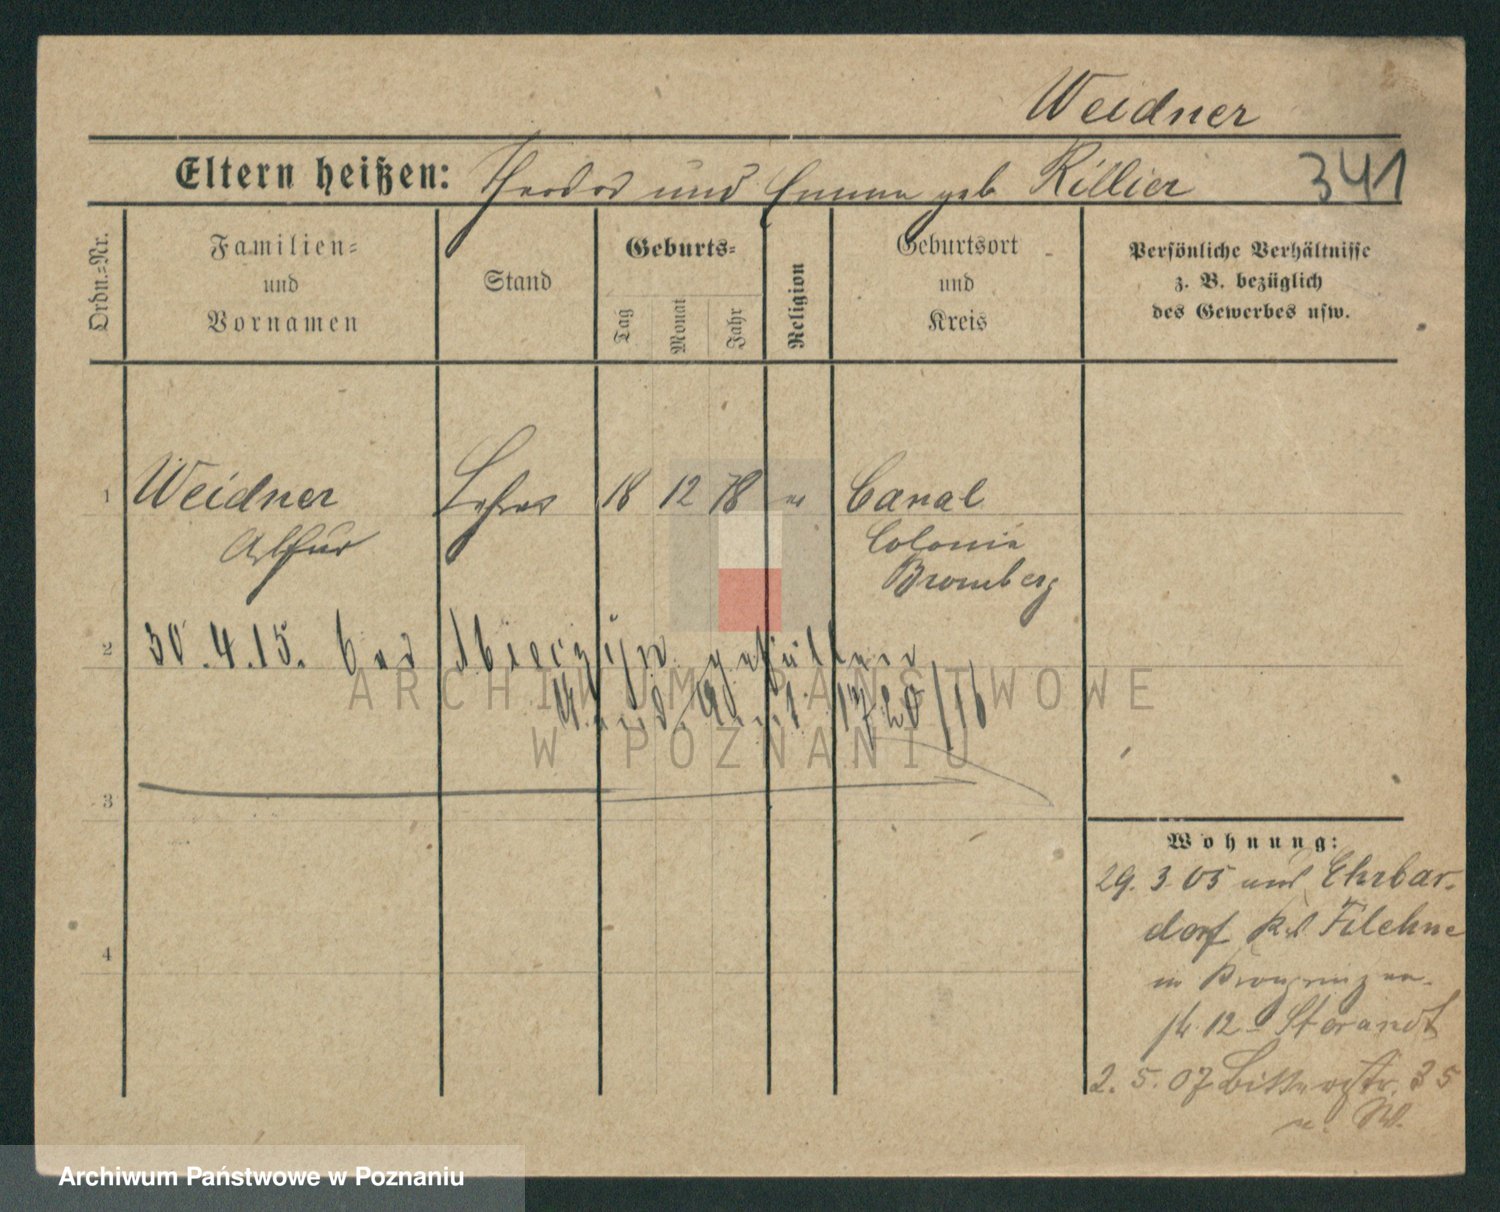 Weidner
Eltern heißen: Theodor und Emma geb Rillier 341
Ordn.=Nr.
Familien=
und
Vornamen
Stand
Geburts=
Tag
Monat
Jahr
Religion
Geburtsort
und
Kreis
Persönliche Verhältnisse
z. B. bezüglich
des Gewerbes usw.
1 Weidner Lehrer 18 12 78 ev Canal
Arthur Colonie
Bromberg
2 30.4.15. bei gefallen
1720/16
ARCHIWUM PAŃSTWOWE
W POZNANIU
3
4
Wohnung:
29. 3. 05 aus Ehrbar-
dorf Krs. Filehne
in
12 Storandt
2. 5. 07 35
n. W.
Archiwum Państwowe w Poznaniu